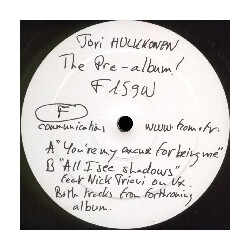 Jori HULKKONEN
The Pre-album!
F 159W
F
communications www.fcom.fr.
A "You're my excuse for being me"
B "All I see shadows"
feat Nick Triani on Vx.
Both tracks from forthcoming
album.